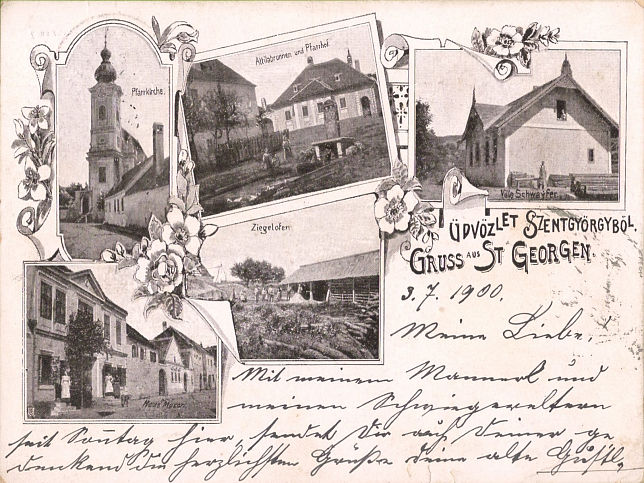 Pfarrkirche.
Attilabrunnen und Pfarrhof.
Villa Schwayfer.
Ziegelofen
ÜDVÖZLET SZENTGYÖRGYBÖL.
GRUSS AUS ST GEORGEN.
3. 7. 1900.
Meine Liebe,
Mit meinem Mannerl und
meinen Schwiegereltern
seit Sonntag hier, sendet Dir auf Deiner ge
denkend die herzlichsten Grüße deine alte Gustl.